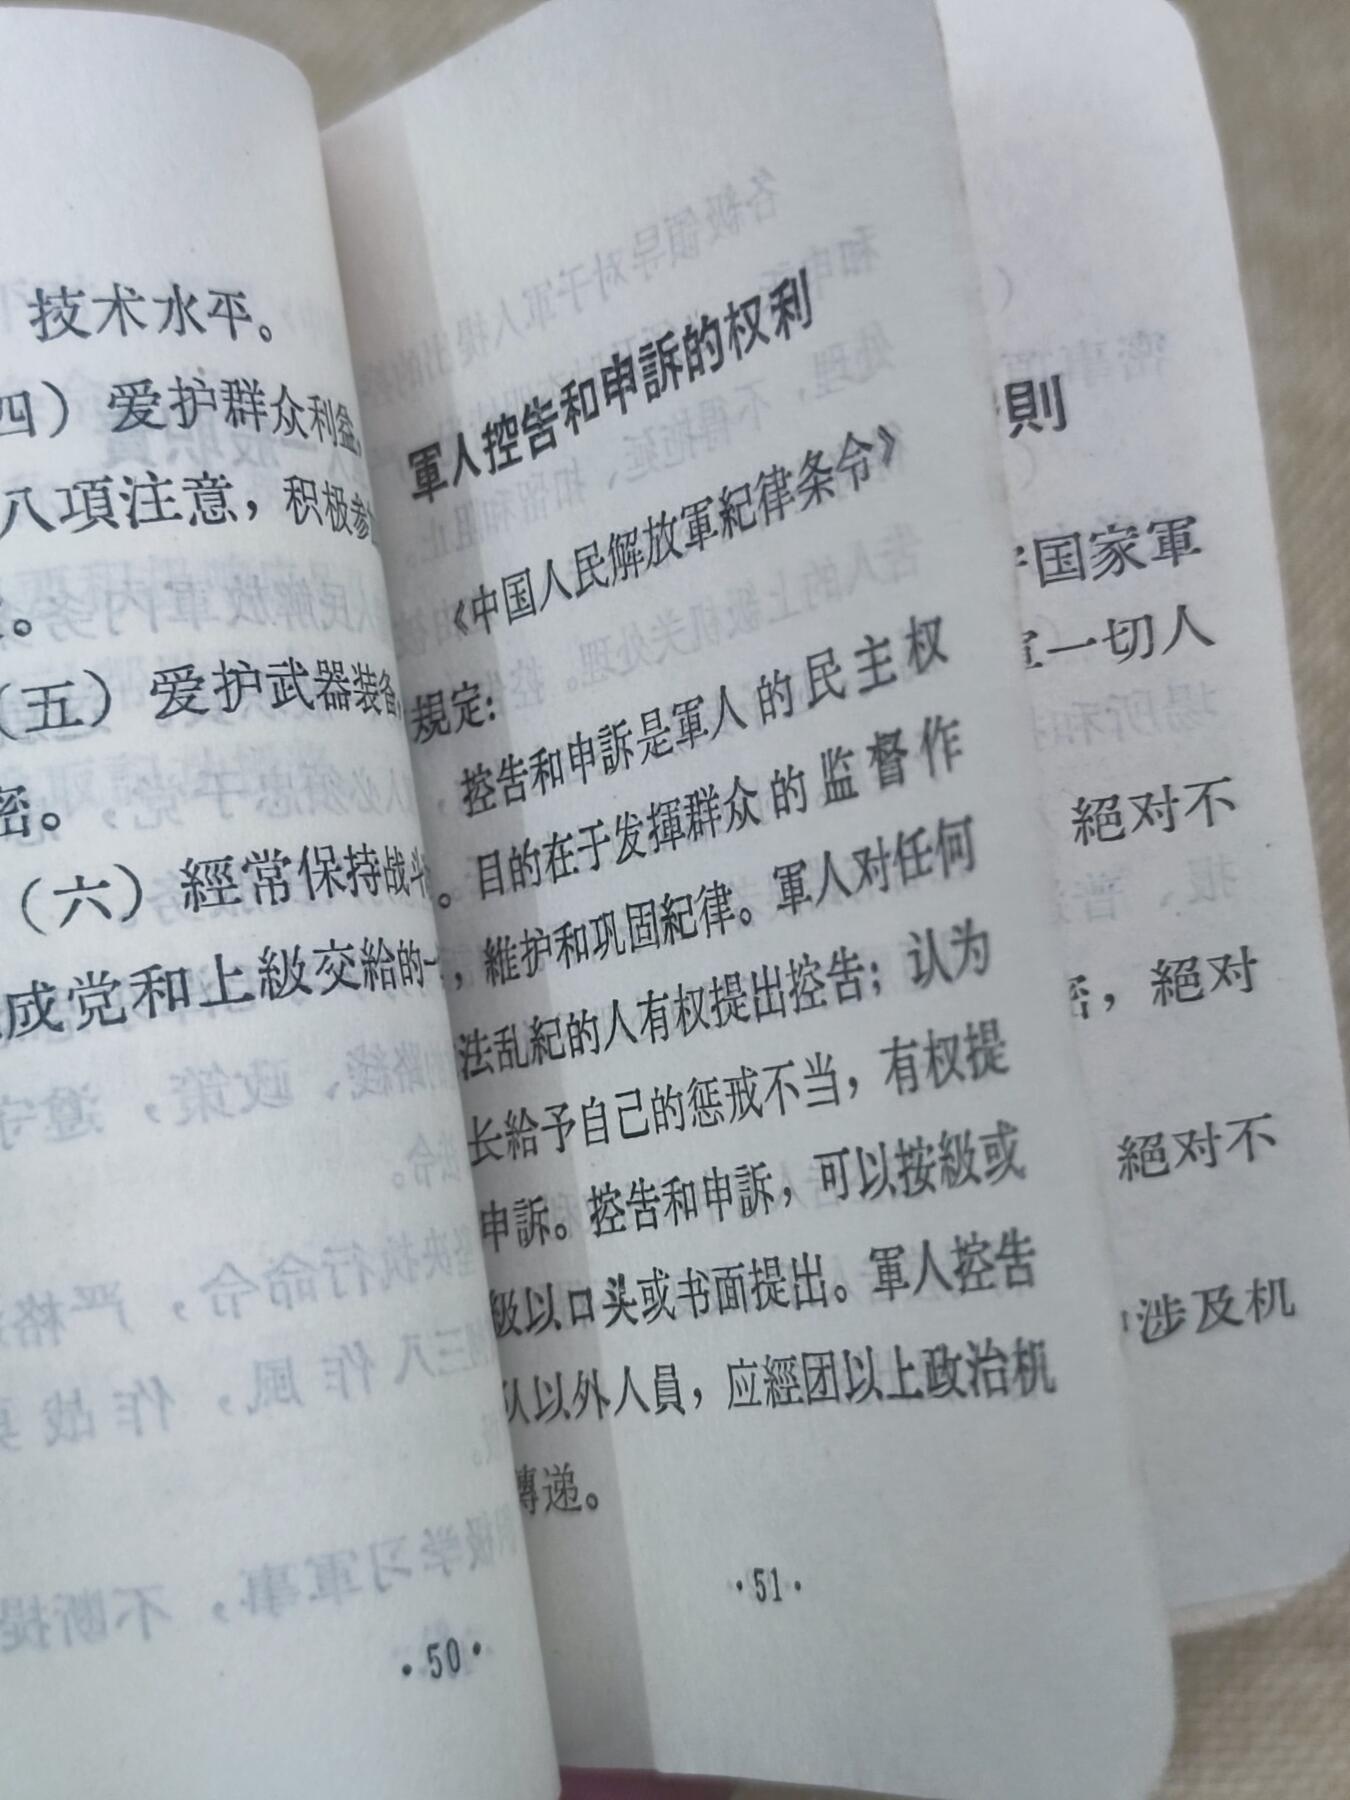 技术水平。
四）爱护群众利益，
八項注意，积极参
。
（五）爱护武器装备，
密。
（六）經常保持战斗
成党和上級交給的一
·50·
軍人控告和申訴的权利
《中国人民解放軍紀律条令》
規定：
控告和申訴是軍人的民主权
。目的在于发揮群众的监督作
，維护和巩固紀律。軍人对任何
法乱紀的人有权提出控告；认为
长給予自己的惩戒不当，有权提
申訴。控告和申訴，可以按級或
級以口头或书面提出。軍人控告
队以外人員，应經团以上政治机
傳递。
·51·
則
国家軍
一切人
絕对不
密，絕对
絕对不
涉及机